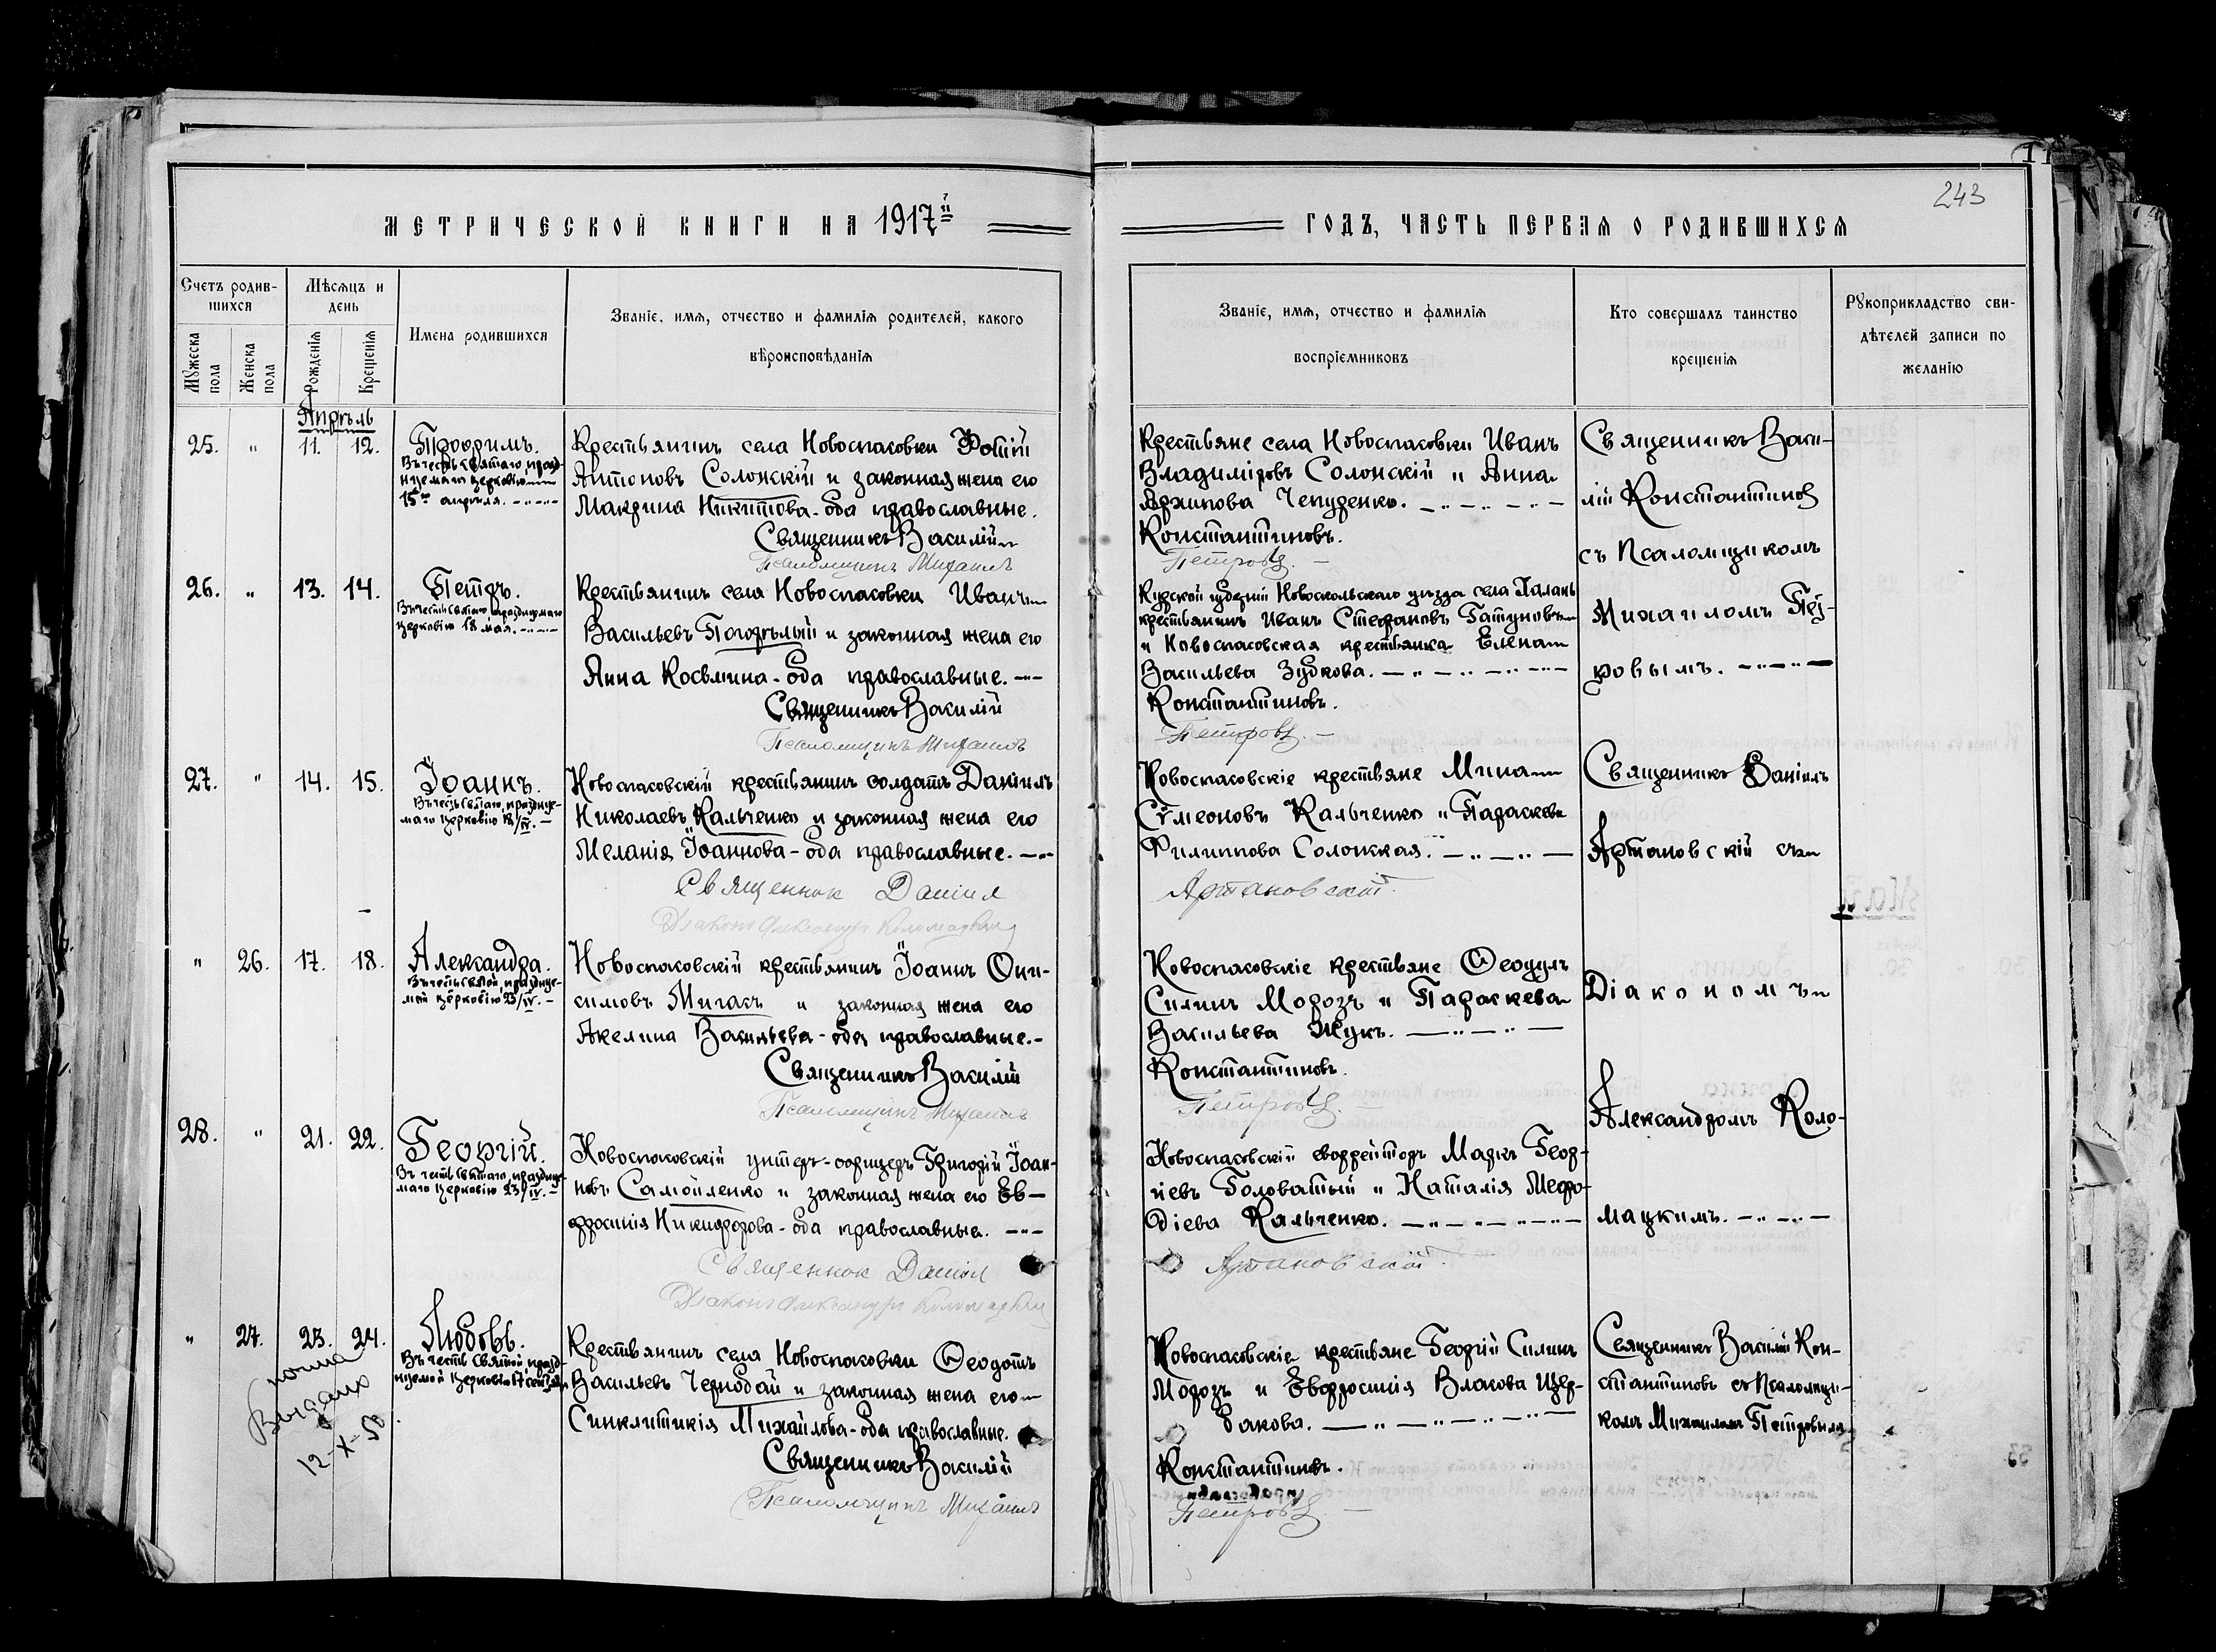 243
МЕТРИЧЕСКОЙ КНИГИ НА 1917й
ГОДЪ, ЧАСТЬ ПЕРВАЯ О РОДИВШИХСЯ
Счетъ родив-
шихся
Мужеска пола
Женска пола
Мѣсяцъ и
день
Рожденія
Крещенія
Имена родившихся
Званіе, имя, отчество и фамилія родителей, какого
вѣроисповѣданія
Званіе, имя, отчество и фамилія
воспріемниковъ
Кто совершалъ таинство
крещенія
Рукоприкладство сви-
дѣтелей записи по
желанію
Апрѣль
25. " 11. 12.
Трофимъ.
Въ честь святаго, празд-
нуемаго церковію
15го апрѣля.
Крестьянинъ села Новоспасовки Фотій
Антоновъ Солонскій и законная жена его
Макрина Никитова - оба православные.
Священникъ Василій
Псаломщикъ Михаилъ
Крестьяне села Новоспасовки Иванъ
Владиміровъ Солонскій и Анна
Архипова Чепуренко.
Константиновъ.
Петровъ.
Священникъ Васи-
лій Константиновъ
съ Псаломщикомъ
Михаиломъ Пет-
ровымъ.
26. " 13. 14.
Петръ.
Въ честь святаго, празднуемаго
церковію 18 мая.
Крестьянинъ села Новоспасовки Иванъ
Васильевъ Погорѣлый и законная жена его
Анна Косьмина - оба православные.
Священникъ Василій
Псаломщикъ Михаилъ
Курской губерніи Новооскольскаго уѣзда села Халань
крестьянинъ Иванъ Стефановъ
и Новоспасовская крестьянка Елена
Васильева Зубкова.
Константиновъ.
Петровъ.
27. " 14. 15.
Іоаннъ.
Въ честь святаго, праздnуе-
маго церковію 18/IV.
Новоспасовскій крестьянинъ солдатъ Даніилъ
Николаевъ Кальченко и законная жена его
Меланія Іоаннова - оба православные.
Священнок Даніил
Діаконъ Александръ Коломацкій
Новоспасовскіе крестьяне Мина
Сѵмеоновъ Кальченко и Параскева
Филиппова Солонская.
Артановскій.
Священникъ Даніилъ
Артановскій съ
Діакономъ
Александромъ Коло-
мацкимъ.
" 26. 17. 18.
Александра.
Въ честь святой, праздnуе-
мой церковію 23/IV.
Новоспасовскій крестьянинъ Іоаннъ Они-
симовъ Мигаль и законная жена его
Акелина Васильева - оба православные.
Священникъ Василій
Псаломщикъ Михаилъ
Новоспасовскіе крестьяне Ѳеодулъ
Силинъ Морозъ и Параскева
Васильева Жукъ.
Константиновъ.
Петровъ.
28. " 21. 22.
Георгій.
Въ честь святаго, празднуе-
маго церковію 23/IV.
Новоспасовскій унтеръ-офицеръ Григорій Іоан-
новъ Самойленко и законная жена его Ев-
фросинія Никифорова - оба православные.
Священнок Даніил
Діаконъ Александръ Коломацкій
Новоспасовскій ефрейторъ Маркъ Геор-
гіевъ Головатый и Наталія Мефо-
діева Кальченко.
Артановскій.
" 27. 23. 24.
Любовь.
Въ честь святой, празд-
нуемой церковію 17 сентяб.
Крестьянинъ села Новоспасовки Ѳеодотъ
Васильевъ Чернобай и законная жена его
Синклитикія Михайлова - оба православные.
Священникъ Василій
Псаломщикъ Михаилъ
Новоспасовскіе крестьяне Георгій Силинъ
Морозъ и Евфросинія Власова Щер-
бакова.
Константиновъ.
Петровъ.
Священникъ Василій Кон-
стантиновъ съ Псаломщи-
комъ Михаиломъ Петровымъ
копия
Выдана
12-X-50